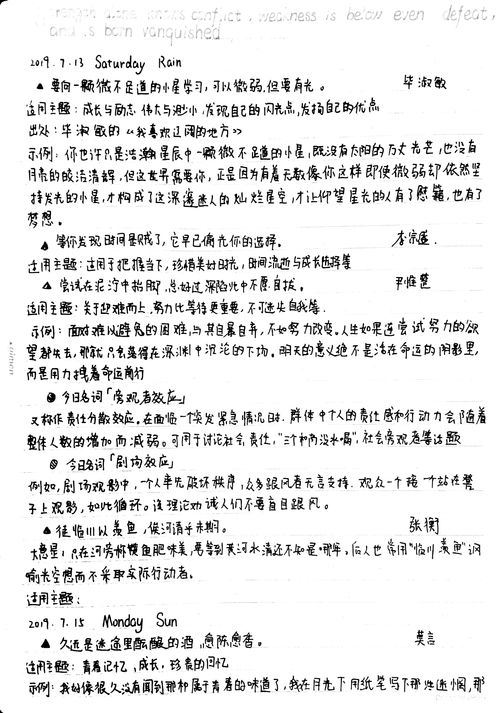 reason alone knows conflict, weakness is below even defeat,
and is born vanquished
2019.7.13 Saturday Rain
▲ 要向一颗微不足道的小星学习,可以微弱,但要有光。 毕淑敏
适用主题:成长与励志 伟大与渺小,发现自己的闪光点,发扬自己的优点
出处:毕淑敏的《我喜欢辽阔的地方》
示例:你也许只是浩瀚星辰中一颗微不足道的小星,既没有太阳的万丈光芒,也没有
月亮的皎洁清辉,但这世界需要你,正是因为有着无数像你这样即使微弱却依然坚
持发光的小星,才构成了这深邃迷人的灿烂星空,才让仰望星光的人有了慰藉,也有了
梦想。
▲ 等你发现时间是贼了,它早已偷光你的选择。 李宗盛
适用主题:适用于把握当下,珍惜美好时光,时间流逝与成长选择等
▲ 尝试在泥泞中抬脚,总好过深陷此中不愿自拔。 尹惟楚
适用主题:关于迎难而上,努力比等待更重要,不可迷失自我等
示例:面对难以避免的困难,与其自暴自弃,不如努力改变。人生如果连尝试努力的欲
望都失去,那就只会落得在深渊中沉沦的下场。明天的意义绝不是活在命运的阴影里,
而是用力拽着命运前行
◎ 今日名词「旁观者效应」
又称作责任分散效应。在面临一个突发紧急情况时,群体中个人的责任感和行动力会随着
整体人数的增加而减弱。可用于讨论社会责任,“三个和尚没水喝”,社会旁观者等话题
◎ 今日名词「剧场效应」
例如,剧场观影中,一个人率先破坏秩序,众多跟风者无言支持.观众一个接一个站在凳
子上观影,如此循环。该理论劝诫人们不要盲目跟风。
▲ 徒临川以羡鱼,俟河清乎未期。 张衡
大意是:只在河旁称馍鱼肥味美,要等到黄河水清还不知是哪年,后人也常用“临川羡鱼”词
喻光空想而不采取实际行动者。
适用主题:
2019.7.15 Monday Sun
▲ 久远是迷途里酝酿的酒,愈陈愈香。 莫言
适用主题:青春记忆,成长,珍贵的回忆
示例:我好像很久没有闻到那种属于青春的味道了,我在月光下用纸笔写下那些迷惘,那